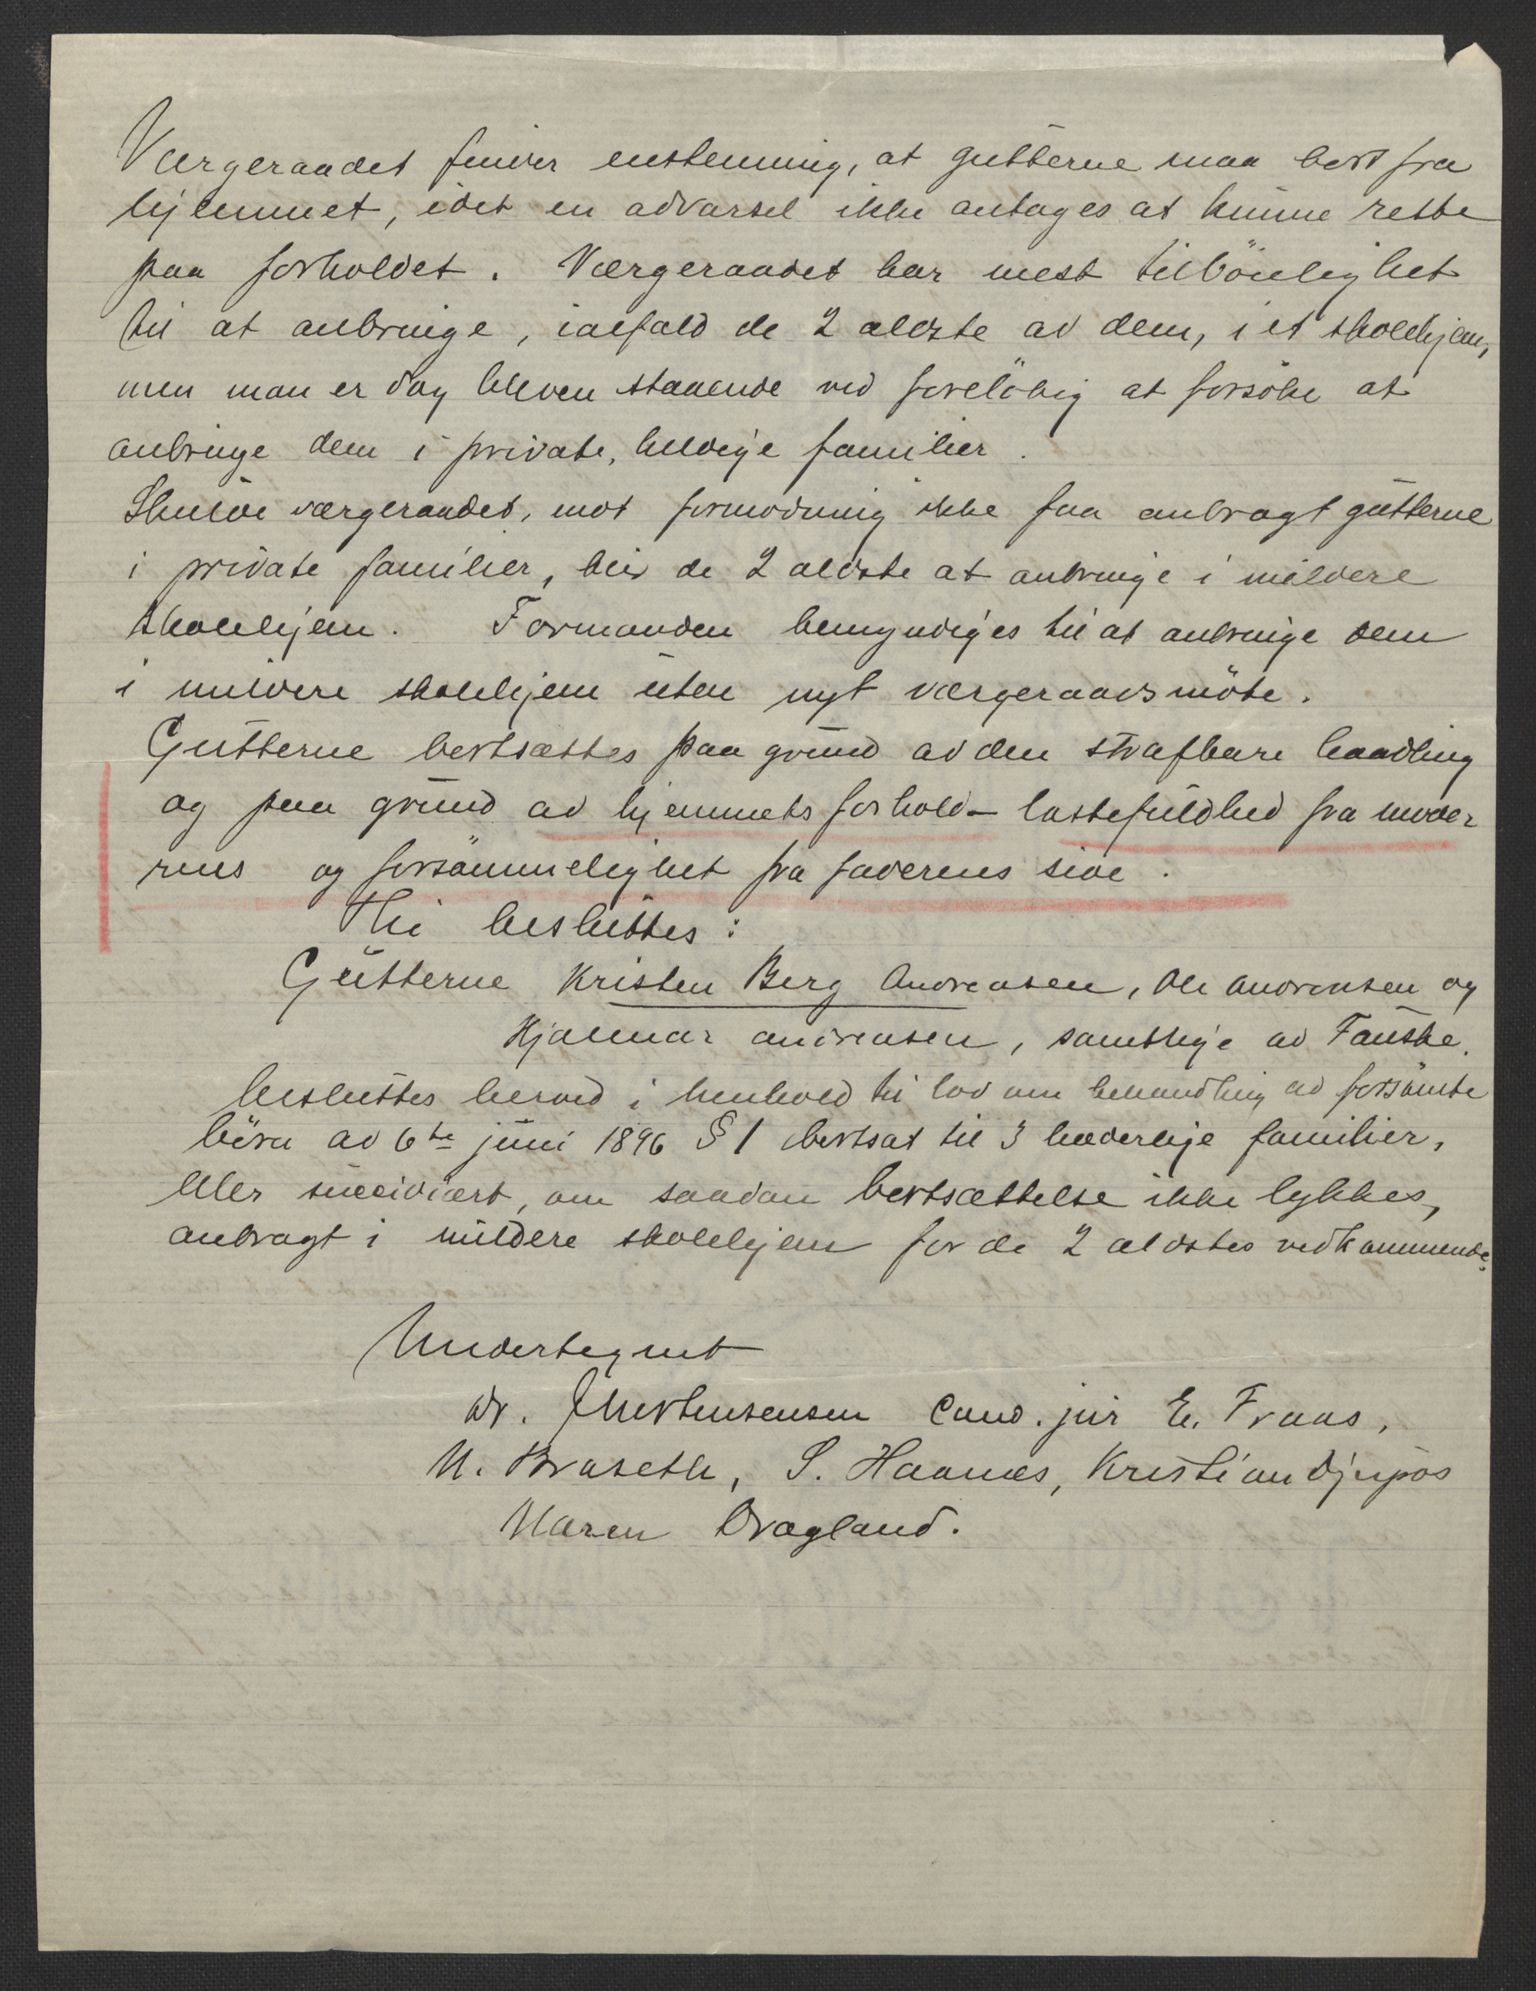 Værgeraadet finder enstemmig, at gutterne maa bort fra
hjemmet, idet en advarsel ikke antages at kunne rette
paa forholdet. Værgeraadet har mest tilböielighet
til at anbringe, ialfald de 2 ældste av dem, i et skolehjem,
men man er dog bleven staaende ved foreløbig at forsöke at
anbringe dem i private, heldige familier.
Skulde værgeraadet, mot formodning ikke faa anbragt gutterne
i private familier, blir de 2 ældste at anbringe i mildere
skolehjem. Formanden bemyndiges til at anbringe dem
i mildere skolehjem uten nyt værgeraadsmöte.
Gutterne bortsættes paa grund av den strafbare handling
og paa grund av hjemmets forhold – lastefuldhed fra moder
rens og forsömmelighet fra faderens side.
Thi besluttes:
Gutterne Kristen Berg Andreasen, Ole Andreasen og
Hjalmar Andreasen, samtlige av Fauske
besluttes herved i henhold til lov om behandling av forsömte
börn av 6te juni 1896 § 1 bortsat til 3 hæderlige familier,
eller sucsidiært, om saadan bortsættelse ikke lykkes,
anbragt i mildere skolehjem for de 2 ældstes vedkommende.
Undertegnet
Dr. Mortensensen Cand. jur E. Traas,
N. Braseth, S. Haanes, Kristian Djupos
Maren Dragland.